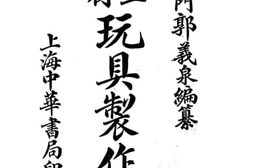 郭義泉編纂
玩具製作
上海中華書局印